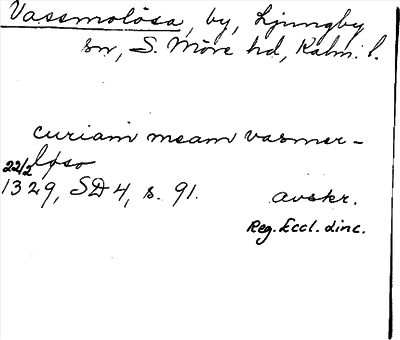 Vassmolösa, by, Ljungby
sn, S. Möre hd, Kalm. l.
curiam meam vasmer-
løso
22/2
1329, SD 4, s. 91. avskr.
Reg. Eccl. Linc.